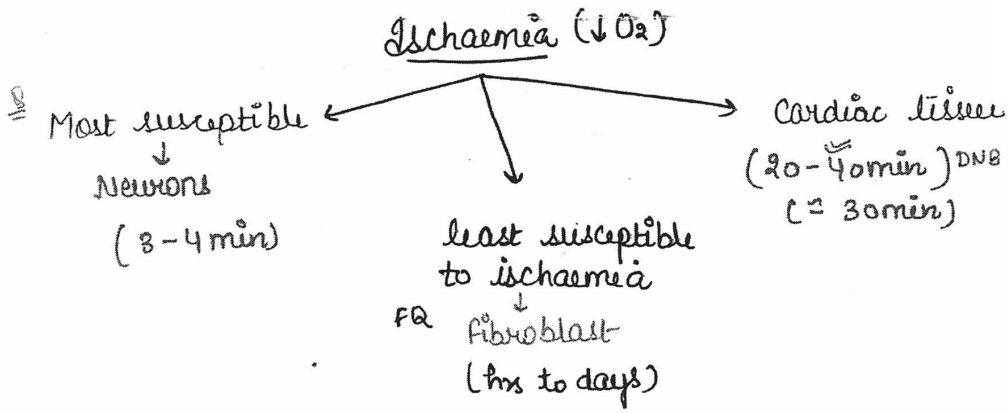 Ischaemia (↓O₂)
Most susceptible
↓
Neurons
(3-4 min)
least susceptible
to ischaemia
↓
FQ fibroblast
(hrs to days)
Cardiac tissue
(20-40min) DNB
(≈ 30min)